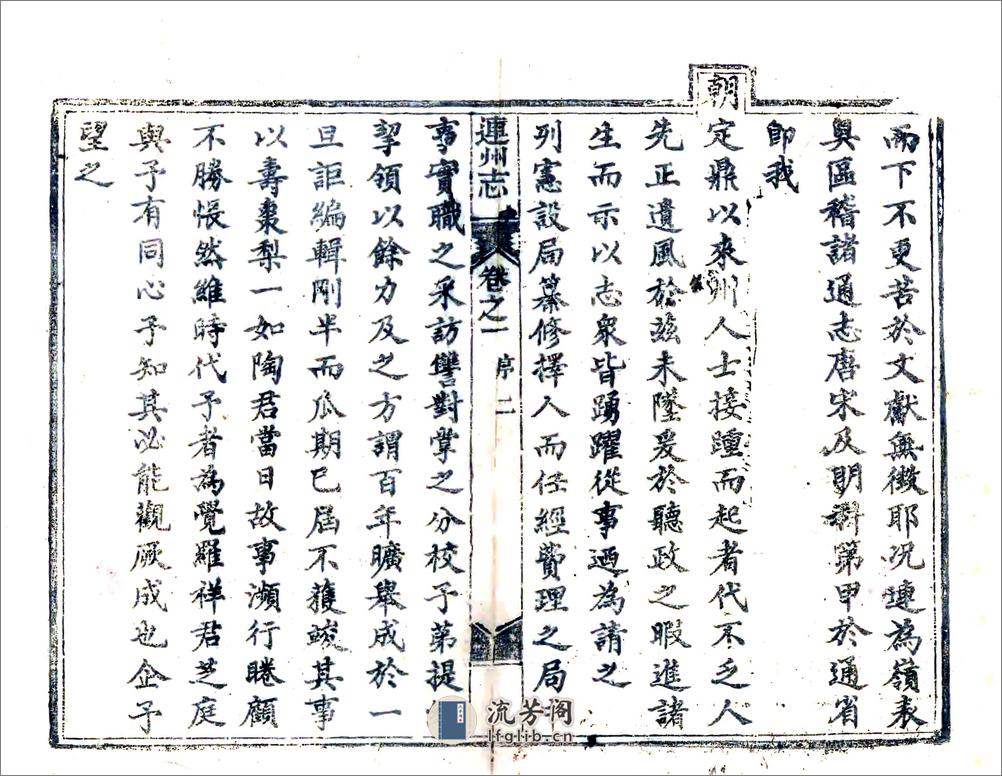 而下不更苦於文獻無徵耶况連為嶺表
奧區稽諸通志唐宋及明科第甲於通省
卽我
朝定鼎以來州人士接踵而起者代不乏人
先正遺風於兹未墜爰於聽政之暇進諸
生而示以志衆皆踴躍從事迺為請之
列憲設局纂修擇人而任經費理之局
連州志
卷之一
序
二
事實職之采訪讐對掌之分校予第提
挈領以餘力及之方謂百年曠舉成於一
旦詎編輯剛半而瓜期已屆不獲竣其事
以壽棗梨一如陶君當日故事瀕行睠顧
不勝悵然維時代予者為覺羅祥君芝庭
與予有同心予知其必能觀厥成也企予
望之
流芳阁
lfglib.cn